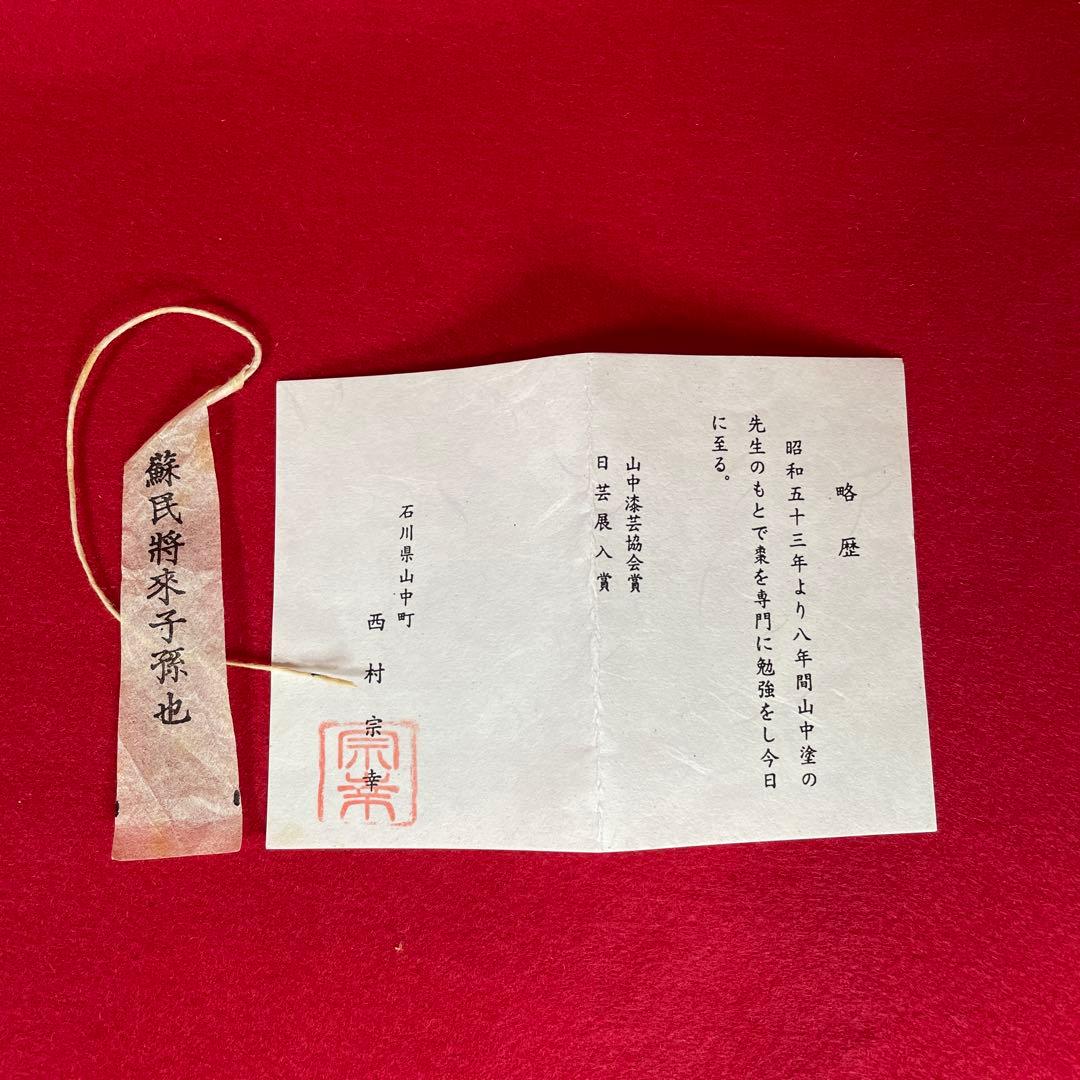 略歴
昭和五十三年より八年間山中塗の
先生のもとで棗を専門に勉強をし今日
に至る。
山中漆芸協会賞
日芸展入賞
石川県山中町
西村宗幸
宗幸
蘇民將來子孫也